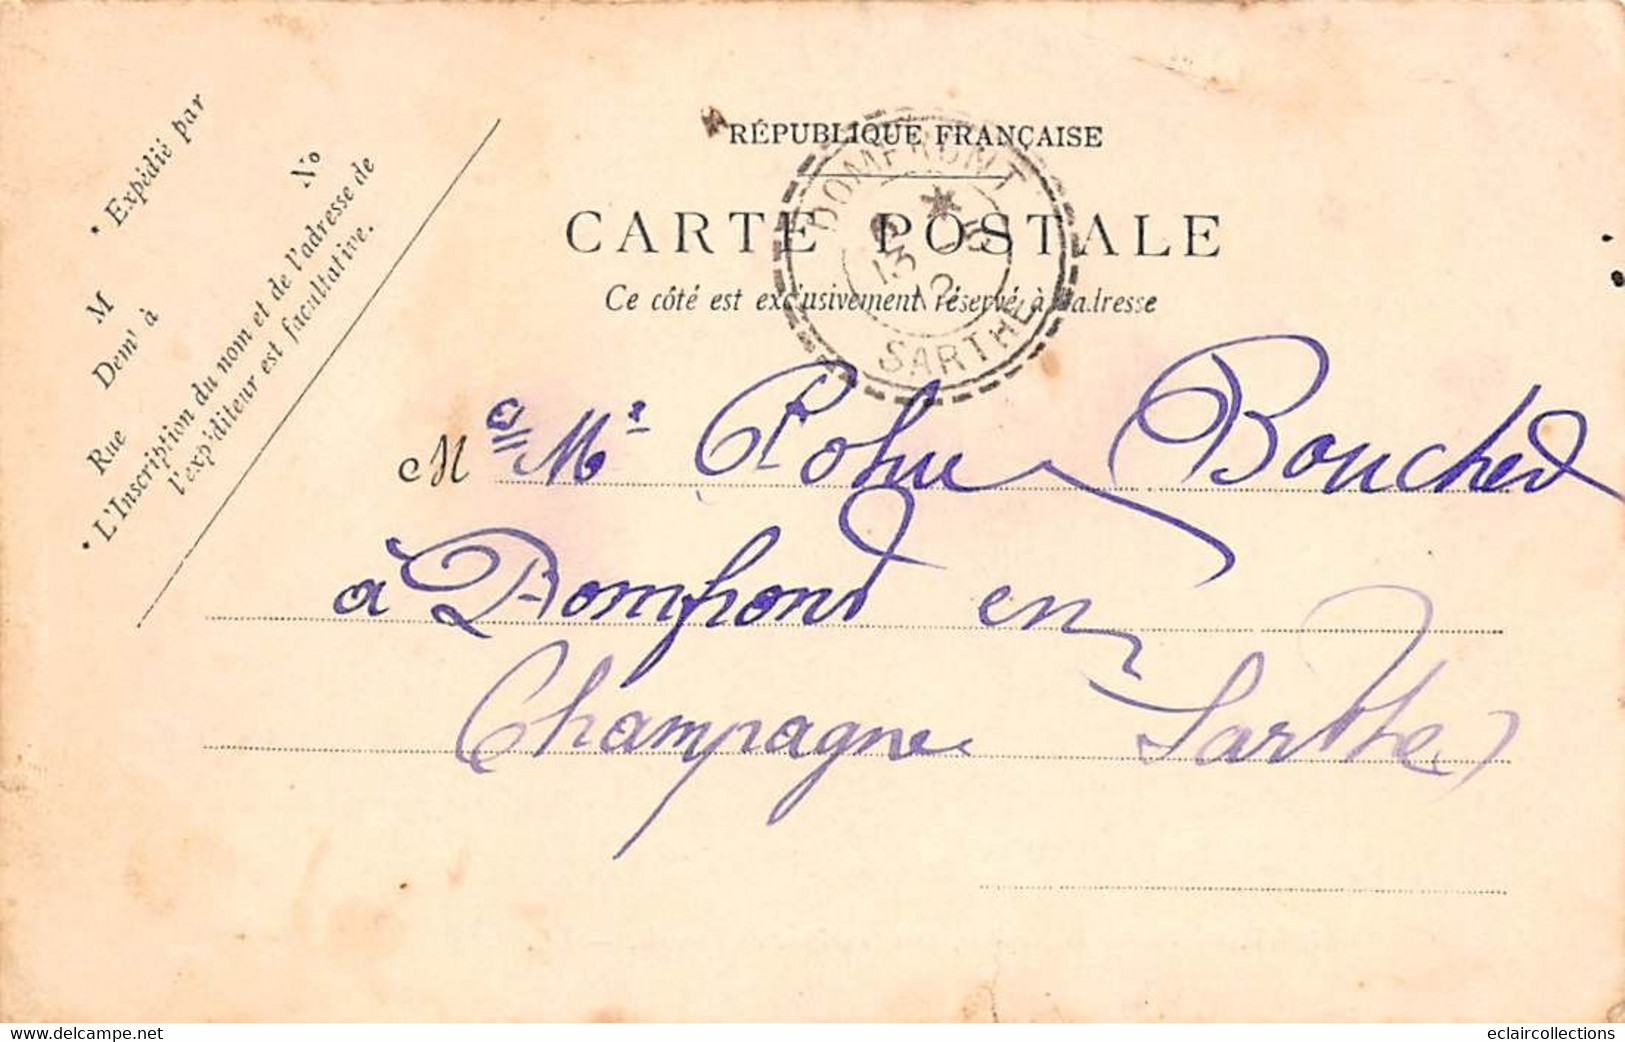 * Expédié par
M No
Demt à
Rue
* L'Inscription du nom et de l'adresse de
l'expéditeur est facultative.
RÉPUBLIQUE FRANÇAISE
CARTE POSTALE
Ce côté est exclusivement réservé à l'adresse
DOMFRONT
13
SARTHE
Me Mr Rohu Boucher
à Domfrond en
Champagne Sarthe
www.delcampe.net
eclaircollections